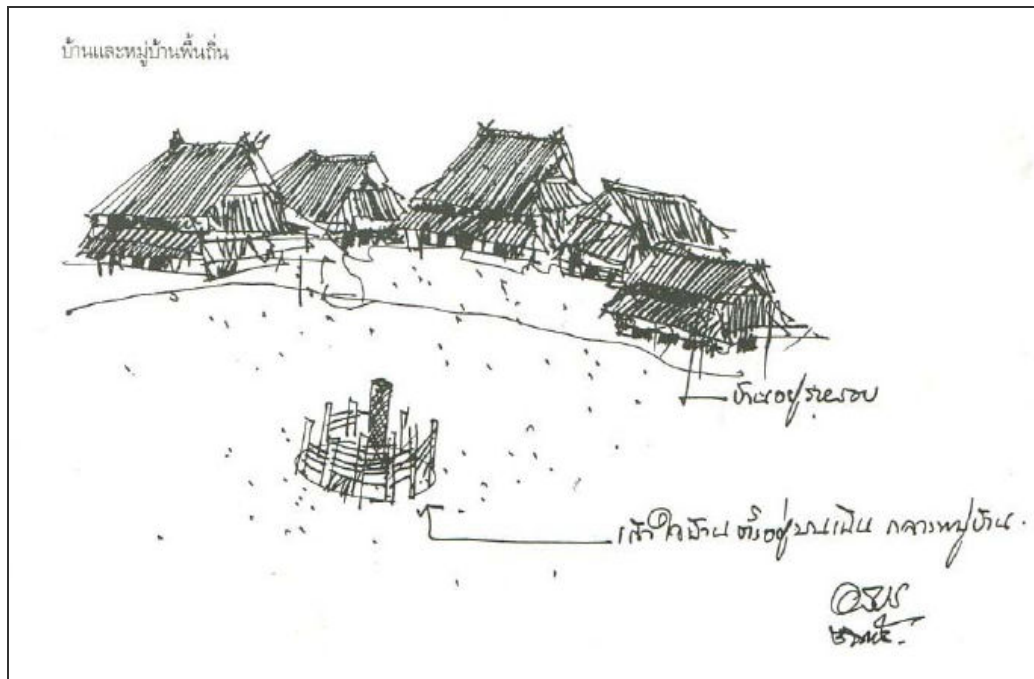 บ้านและหมู่บ้านพื้นถิ่น
บ้านอยู่รายรอบ
เสาใจบ้าน ตั้งอยู่บนเนิน กลางหมู่บ้าน